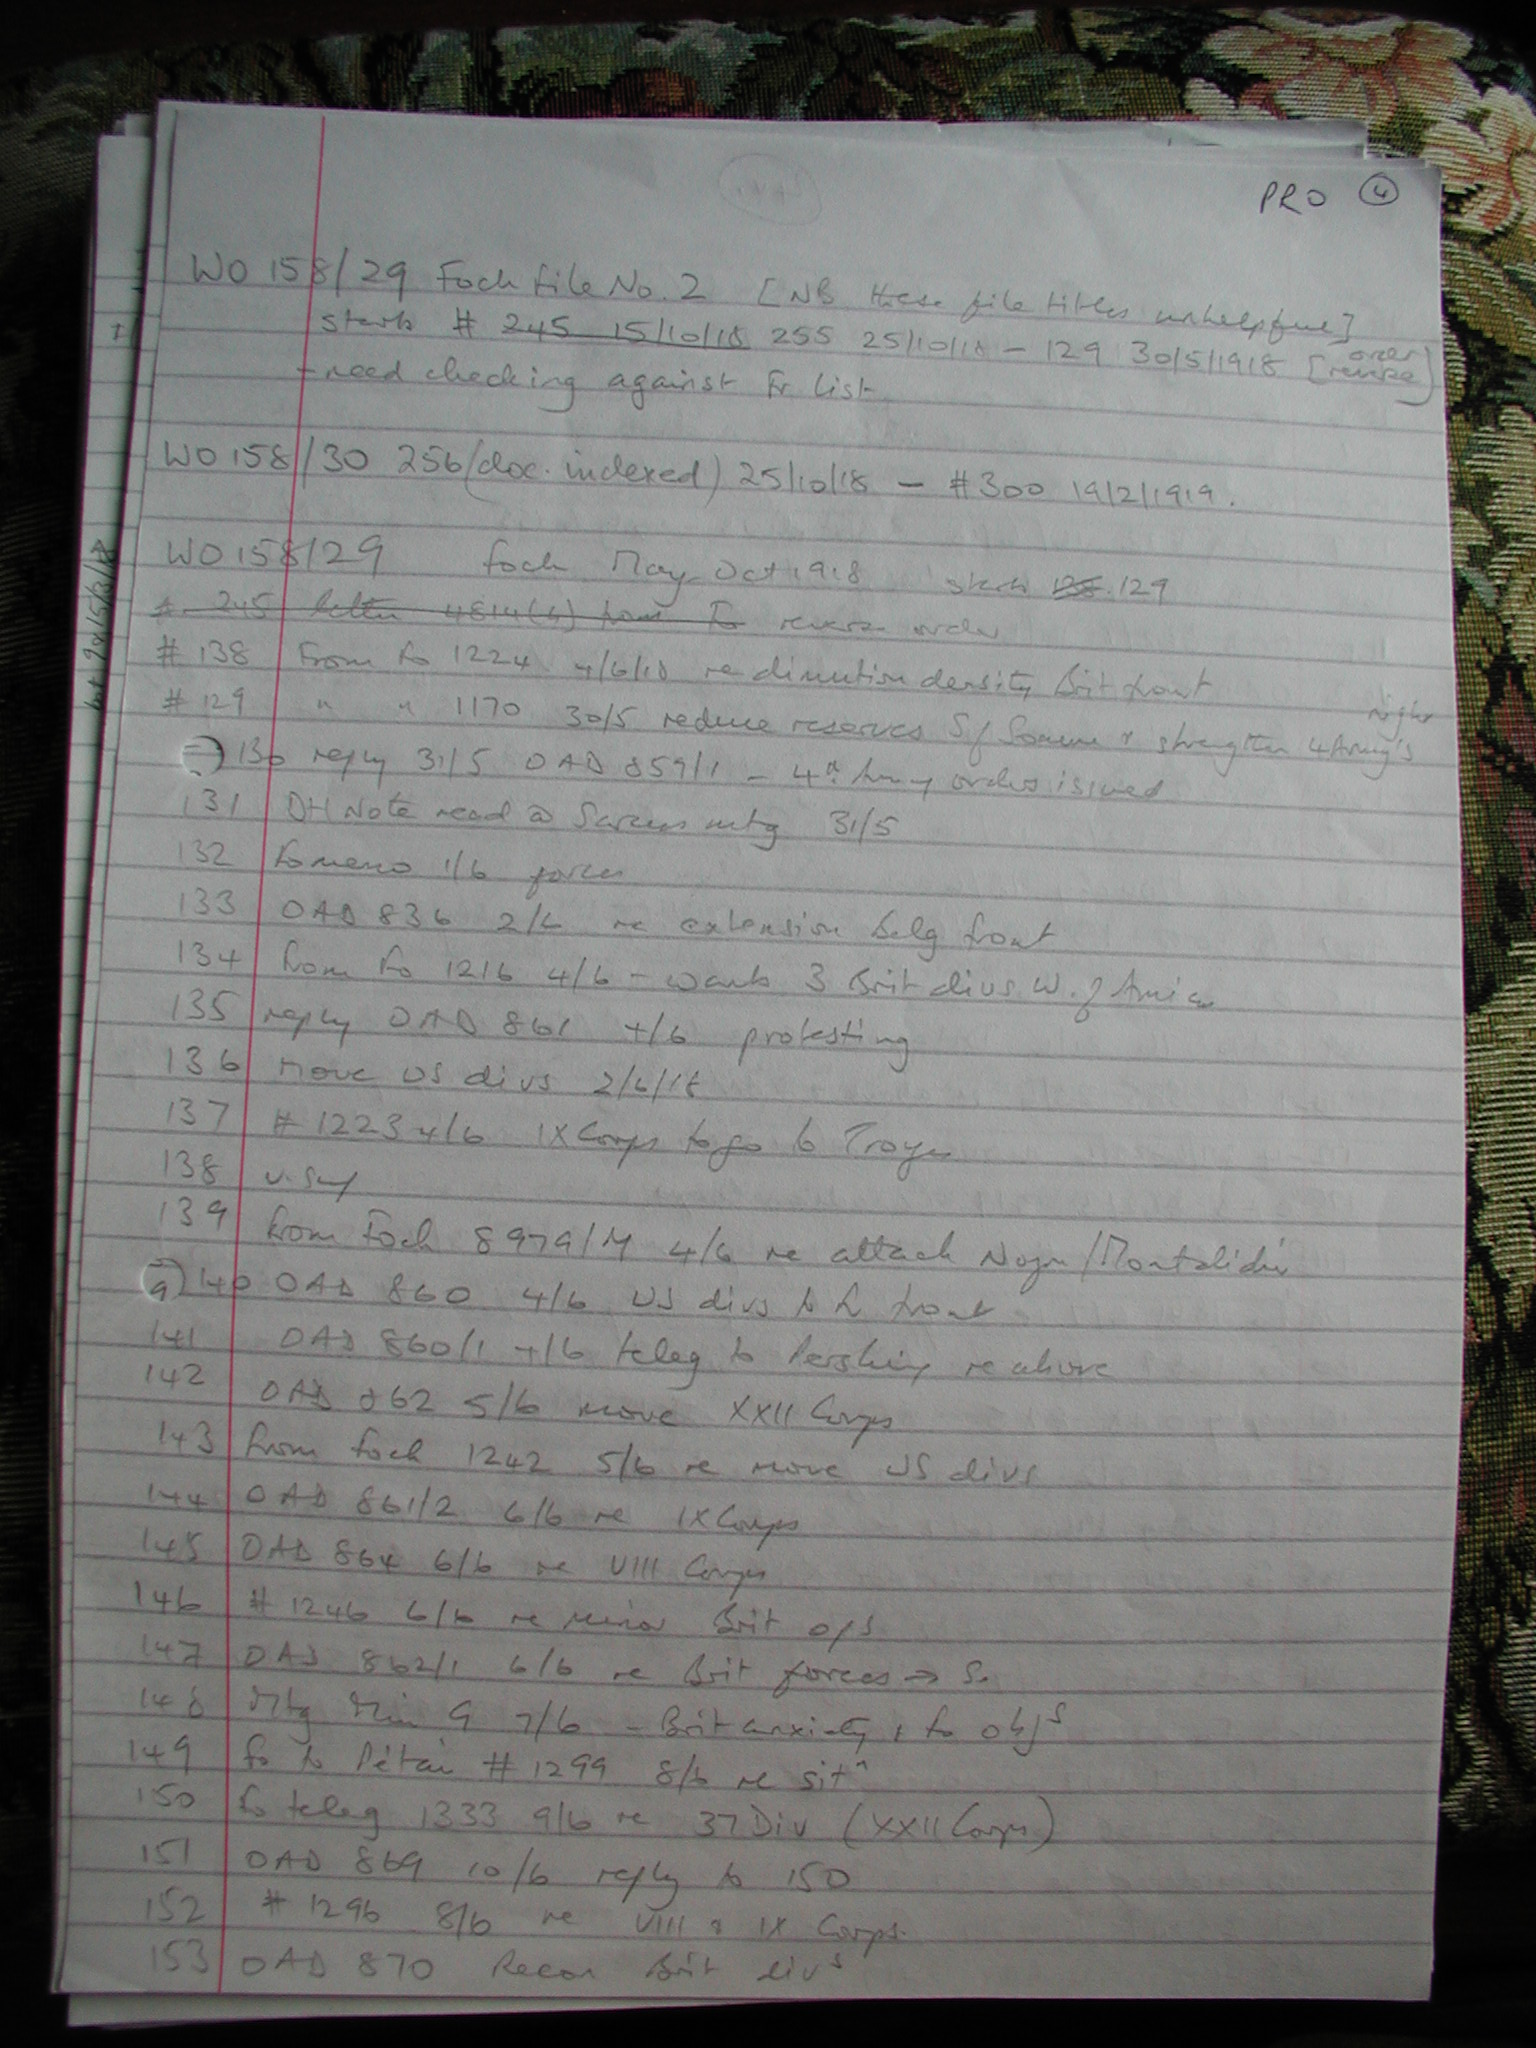 PRO ④
WO 158/29 Foch file No. 2 [NB these file titles unhelpful]
starts # 245 15/10/18 255 25/10/18 – 129 30/5/1918 [reverse order]
– need checking against Fr list
WO 158/30 256 (doc. indexed) 25/10/18 – #300 19/2/1919.
WO 158/29 Foch May–Oct 1918 starts 128. 129
# 245 letter 4814(4) from Fo reverse order
# 138 From Fo 1224 4/6/18 re diminution density Brit front
# 129 " " 1170 30/5 reduce reserves S of Somme & strengthen 4 Army's right
130 reply 31/5 OAD 859/1 – 4th Army orders issued
131 DH Note read @ Sarcus mtg 31/5
132 Fo memo 1/6 forces
133 OAD 836 2/6 re extension Belg front
134 From Fo 1216 4/6 – wants 3 Brit divs W. of Amiens
135 reply OAD 861 4/6 protesting
136 Move US divs 2/6/18
137 # 1223 4/6 IX Corps to go to Troyes
138 v. sup
139 From Foch 8979/M 4/6 re attack Noyon/Montdidier
140 OAD 860 4/6 US divs to Fr front
141 OAD 860/1 4/6 teleg to Pershing re above
142 OAD 862 5/6 move XXII Corps
143 From Foch 1242 5/6 re move US divs
144 OAD 861/2 6/6 re IX Corps
145 OAD 864 6/6 re VIII Corps
146 # 1246 6/6 re minor Brit o/s
147 OAD 862/1 6/6 re Brit forces → S.
148 Mtg Min G 7/6 – Brit anxiety, Fo objs
149 Fo to Pétain # 1299 8/6 re sitn
150 Fo teleg 1333 9/6 re 37 Div (XXII Corps)
151 OAD 869 10/6 reply to 150
152 # 1296 8/6 re VIII & IX Corps.
153 OAD 870 Recon Brit divs